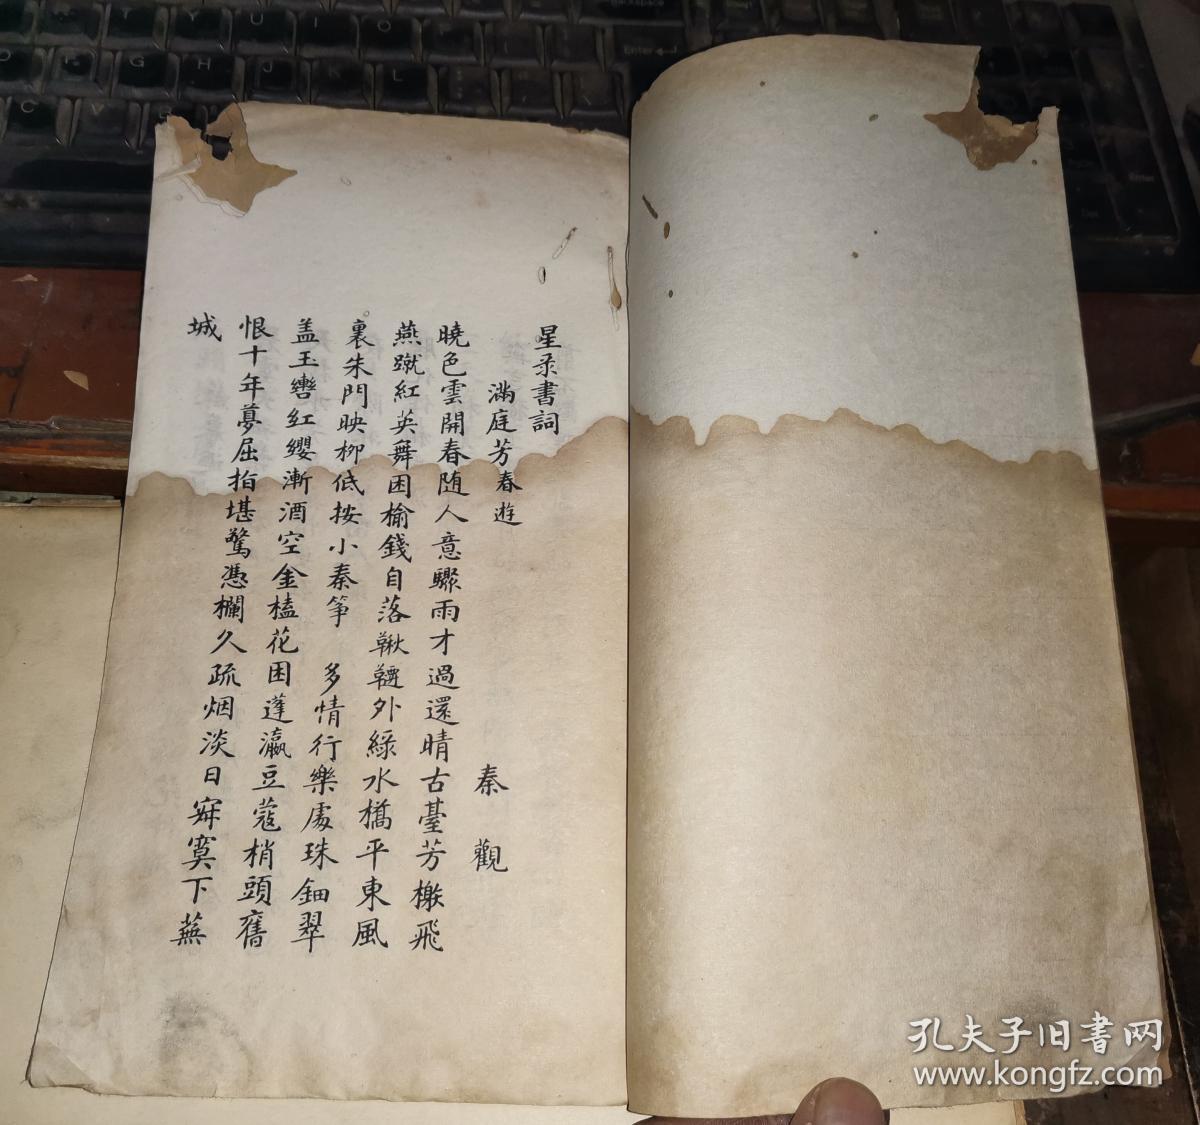 星彔書詞
滿庭芳春遊
秦觀
曉色雲開春随人意驟雨才過還晴古臺芳榭飛
燕蹴紅英舞困榆錢自落鞦韆外綠水橋平東風
裏朱門映柳低按小秦筝 多情行樂處珠鈿翠
盖玉轡紅纓漸酒空金榼花困蓬瀛豆蔻梢頭舊
恨十年夢屈指堪驚憑欄久疏烟淡日寂寞下蕪
城
孔夫子旧書网
www.kongfz.com